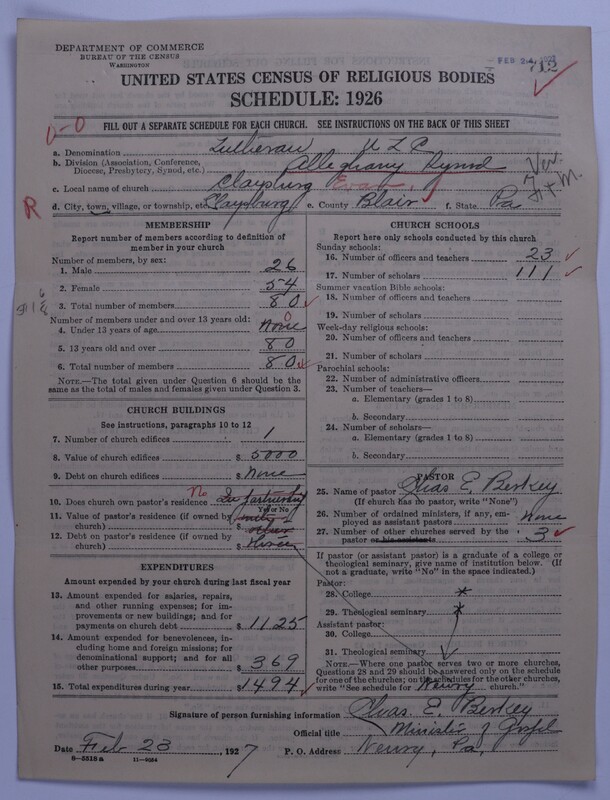 DEPARTMENT OF COMMERCE
BUREAU OF THE CENSUS
WASHINGTON
FEB 24 1927
712
UNITED STATES CENSUS OF RELIGIOUS BODIES
SCHEDULE: 1926
FILL OUT A SEPARATE SCHEDULE FOR EACH CHURCH. SEE INSTRUCTIONS ON THE BACK OF THIS SHEET
a. Denomination Lutheran U L C
b. Division (Association, Conference, Diocese, Presbytery, Synod, etc.) Alleghany Synod
c. Local name of church Claysburg Evan.
d. City, town, village, or township, etc. Claysburg e. County Blair f. State Pa
R
Ver.
H+M.
MEMBERSHIP
Report number of members according to definition of
member in your church
Number of members, by sex:
1. Male 26
2. Female 54
3. Total number of members 80
Number of members under and over 13 years old:
4. Under 13 years of age None 0
5. 13 years old and over 80
6. Total number of members 80
NOTE.—The total given under Question 6 should be
same as the total of males and females given under Question 3.
CHURCH BUILDINGS
See instructions, paragraphs 10 to 12
7. Number of church edifices 1
8. Value of church edifices $ 5000
9. Debt on church edifices $ None
10. Does church own pastor's residence No In partnership
Yes or No
11. Value of pastor's residence (if owned by
church) $
12. Debt on pastor's residence (if owned by
church) $
EXPENDITURES
Amount expended by your church during last fiscal year
13. Amount expended for salaries, repairs,
and other running expenses; for im-
provements or new buildings; and for
payments on church debt $ 1125
14. Amount expended for benevolences, in-
cluding home and foreign missions; for
denominational support; and for all
other purposes $ 369
15. Total expenditures during year $ 1494
CHURCH SCHOOLS
Report here only schools conducted by this church
Sunday schools:
16. Number of officers and teachers 23
17. Number of scholars 111
Summer vacation Bible schools:
18. Number of officers and teachers
19. Number of scholars
Week-day religious schools:
20. Number of officers and teachers
21. Number of scholars
Parochial schools:
22. Number of administrative officers
23. Number of teachers—
a. Elementary (grades 1 to 8)
b. Secondary
24. Number of scholars—
a. Elementary (grades 1 to 8)
b. Secondary
PASTOR
25. Name of pastor Chas E. Berkey
(If church has no pastor, write "None")
26. Number of ordained ministers, if any, em-
ployed as assistant pastors None
27. Number of other churches served by the
pastor or his assistants 3
If pastor (or assistant pastor) is a graduate of a college or
theological seminary, give name of institution below. (If
not a graduate, write "No" in the space indicated.)
Pastor:
28. College *
29. Theological seminary *
Assistant pastor:
30. College
31. Theological seminary
NOTE.—Where one pastor serves two or more churches,
Questions 28 and 29 should be answered only on the schedule
for one of the churches; on the schedules for the other churches,
write "See schedule for Newry church."
Signature of person furnishing information Chas. E. Berkey
Official title Minister of Gospel
Date Feb 23, 1927
P. O. Address Newry, Pa.
8-5518a 11-9054